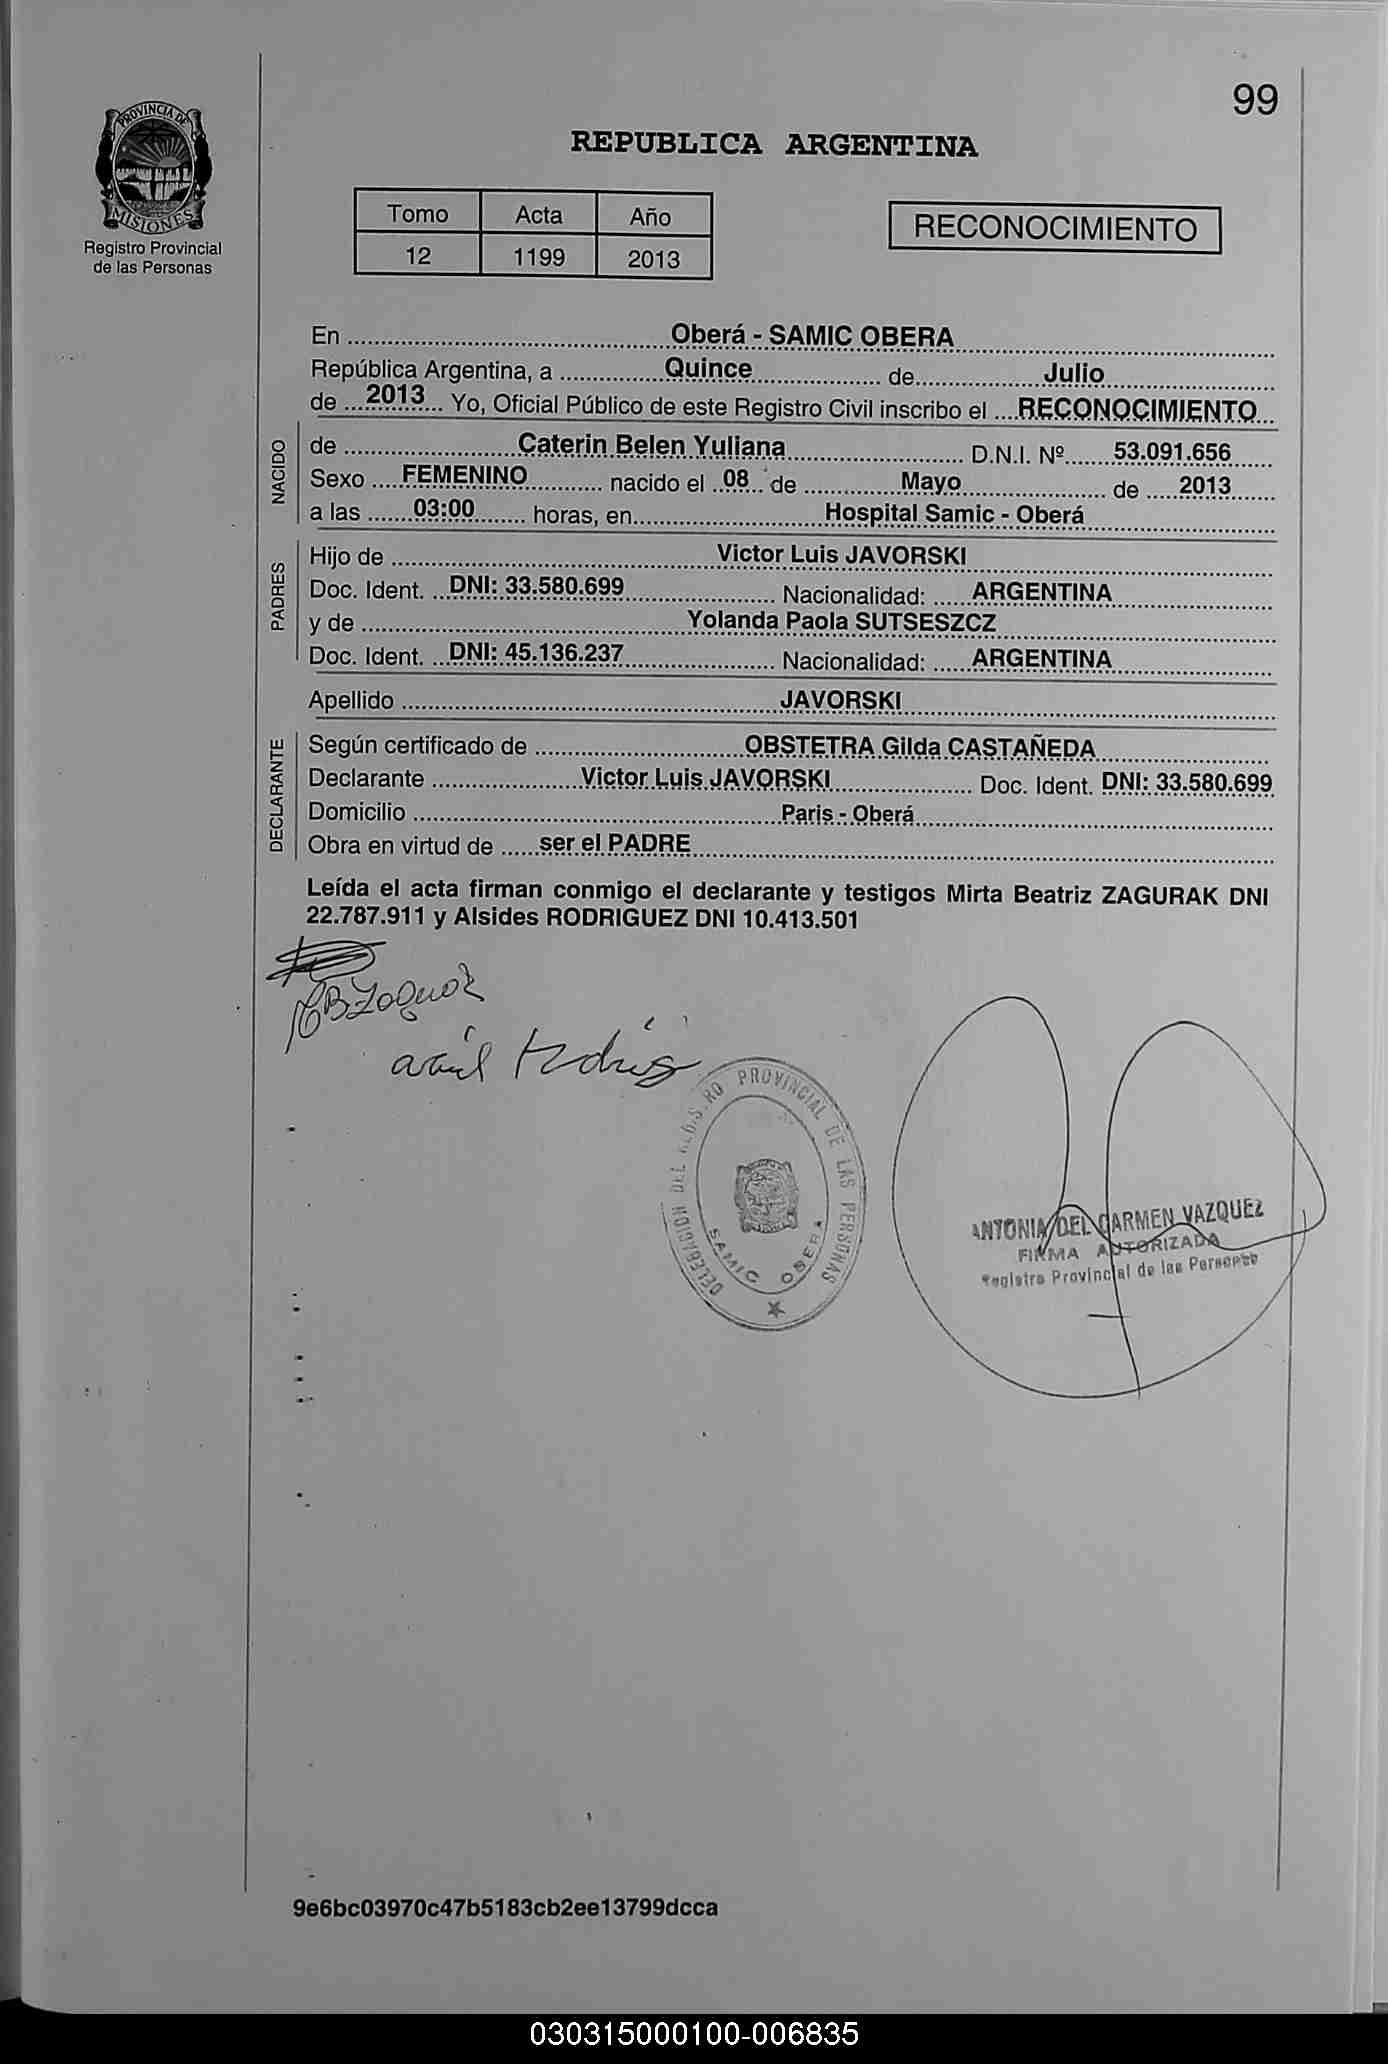 99
PROVINCIA DE
MISIONES
Registro Provincial
de las Personas
REPUBLICA ARGENTINA
Tomo Acta Año
12 1199 2013
RECONOCIMIENTO
En Oberá - SAMIC OBERA
República Argentina, a Quince de Julio
de 2013 Yo, Oficial Público de este Registro Civil inscribo el RECONOCIMIENTO
NACIDO
de Caterin Belen Yuliana D.N.I. Nº 53.091.656
Sexo FEMENINO nacido el 08 de Mayo de 2013
a las 03:00 horas, en Hospital Samic - Oberá
PADRES
Hijo de Victor Luis JAVORSKI
Doc. Ident. DNI: 33.580.699 Nacionalidad: ARGENTINA
y de Yolanda Paola SUTSESZCZ
Doc. Ident. DNI: 45.136.237 Nacionalidad: ARGENTINA
Apellido JAVORSKI
DECLARANTE
Según certificado de OBSTETRA Gilda CASTAÑEDA
Declarante Victor Luis JAVORSKI Doc. Ident. DNI: 33.580.699
Domicilio Paris - Oberá
Obra en virtud de ser el PADRE
Leída el acta firman conmigo el declarante y testigos Mirta Beatriz ZAGURAK DNI
22.787.911 y Alsides RODRIGUEZ DNI 10.413.501
DELEGACION DEL REGISTRO PROVINCIAL DE LAS PERSONAS
SAMIC OBERA
ANTONIA DEL CARMEN VAZQUEZ
FIRMA AUTORIZADA
Registro Provincial de las Personas
9e6bc03970c47b5183cb2ee13799dcca
030315000100-006835